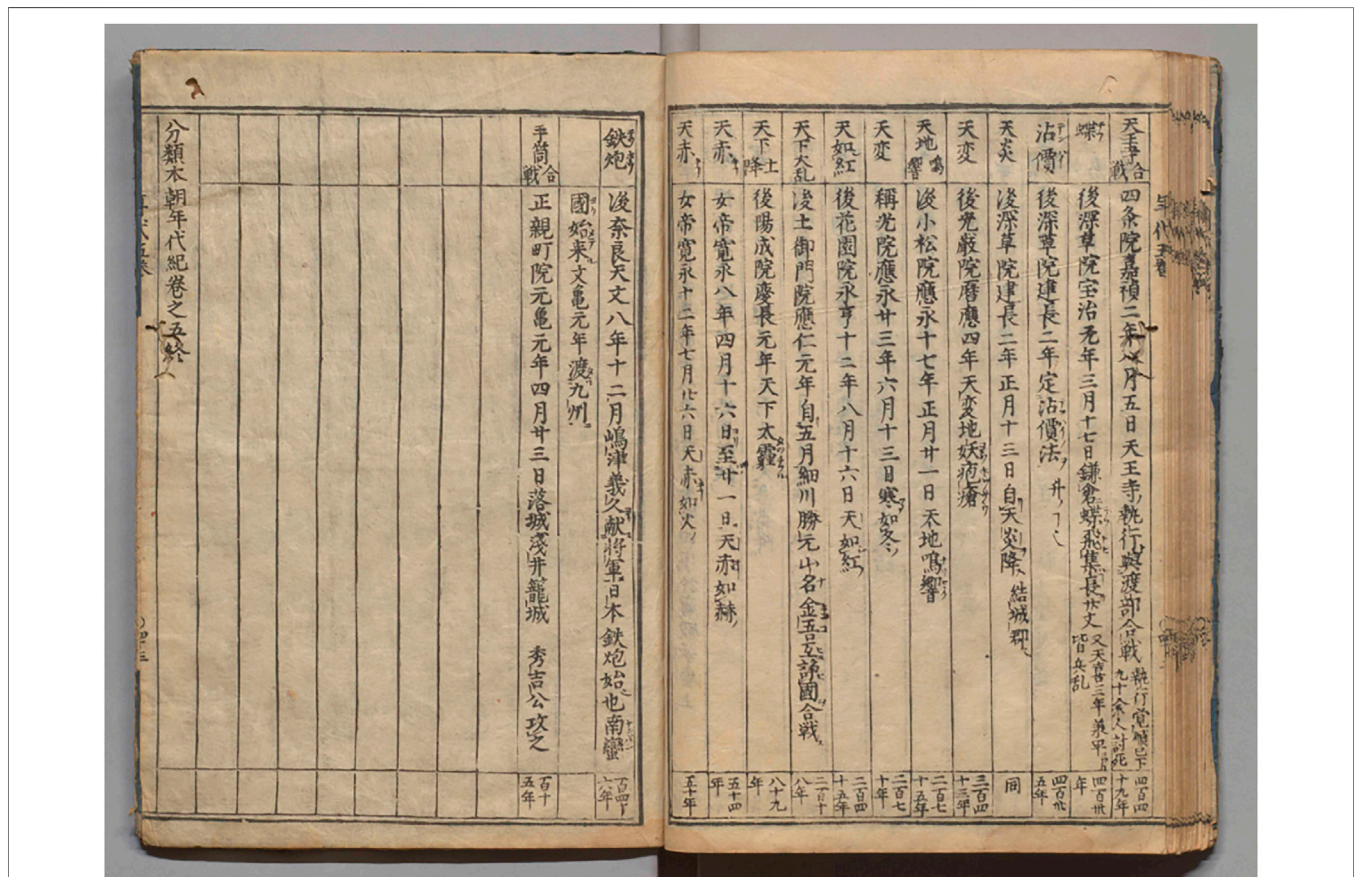 天王寺合戦 四条院嘉禎二年八月五日天王寺執行與渡部合戦 執行覚順已下九十余人討死 四百四十九年
蝶 後深草院宝治元年三月十七日鎌倉蝶飛集長廿丈 又天喜二年 皆兵乱 四百卅年
沽價 後深草院建長二年定沽價法 四百卅五年
天炎 後深草院建長二年正月十三日自天炎降 結城郡 同
天変 後光厳院暦應四年天変地妖疱瘡 三百四十三年
天地鳴響 後小松院應永十七年正月廿一日天地鳴響 二百七十五年
天変 稱光院應永廿三年六月十三日寒如冬 二百七十年
天如紅 後花園院永亨十二年八月十六日天如紅 二百四十五年
天下大乱 後土御門院應仁元年自五月細川勝元山名金吾互諍國合戦 二百十八年
天下土降 後陽成院慶長元年天下大霾 八十九年
天赤 女帝寛永八年四月十六日至廿一日天赤如赫 五十四年
天赤 女帝寛永十二年七月廿六日天赤如火 五十年
鉄炮 後奈良天文八年十二月嶋津義久献将軍日本鉄炮始也南蠻 百四十六年
國始来文亀元年渡九州
手筒合戦 正親町院元亀元年四月廿三日落城浅井籠城 秀吉公攻之 百十五年
分類本朝年代紀巻之五終
四十三